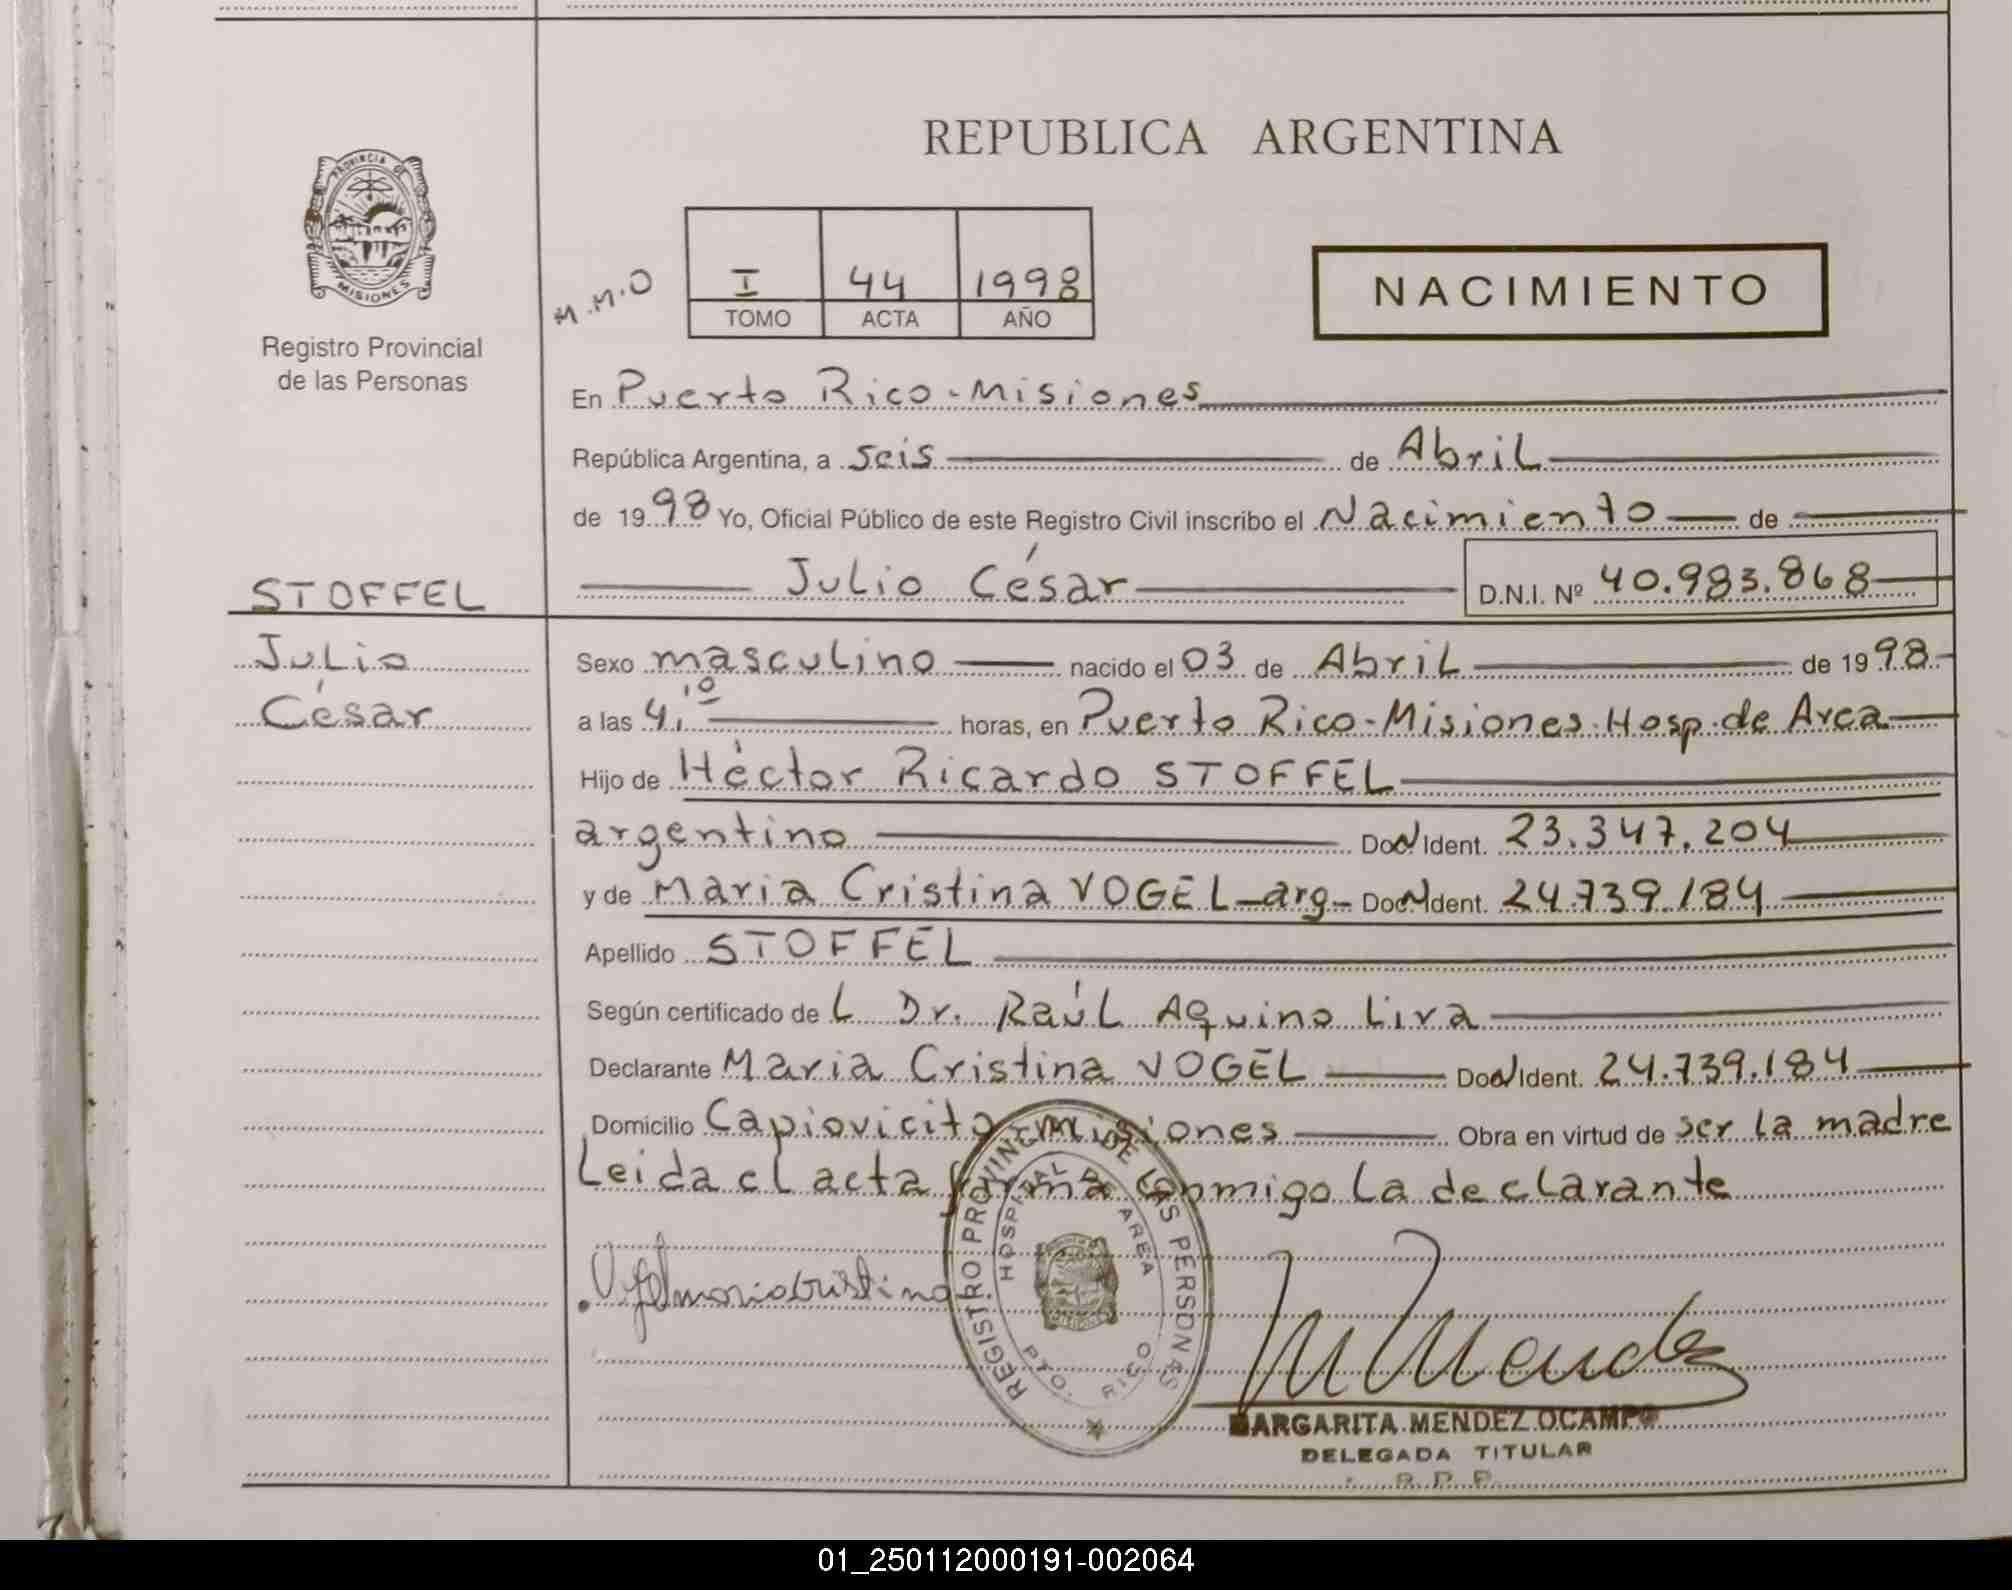 REPUBLICA ARGENTINA
PROVINCIA DE
MISIONES
Registro Provincial
de las Personas
M.M.O
I 44 1998
TOMO ACTA AÑO
NACIMIENTO
En Puerto Rico - Misiones
República Argentina, a seis de Abril
de 1998 Yo, Oficial Público de este Registro Civil inscribo el Nacimiento de
STOFFEL
Julio César D.N.I. Nº 40.983.868
Julio
César
Sexo masculino nacido el 03 de Abril de 1998
a las 4,10 horas, en Puerto Rico - Misiones. Hosp. de Area
Hijo de Héctor Ricardo STOFFEL
argentino Ident. 23.347.204
y de Maria Cristina VOGEL - arg - Ident. 24.739.184
Apellido STOFFEL
Según certificado de L Dr. Raúl Aquino Liva
Declarante Maria Cristina VOGEL Ident. 24.739.184
Domicilio Capiovicito - Misiones Obra en virtud de ser la madre
Leida el acta firma conmigo la declarante
Vogel maria cristina
REGISTRO PROVINCIAL DE LAS PERSONAS
HOSPITAL DE AREA
MISIONES
PTO. RICO
M Mendez
MARGARITA MENDEZ OCAMPO
DELEGADA TITULAR
R. P. P.
01_250112000191-002064